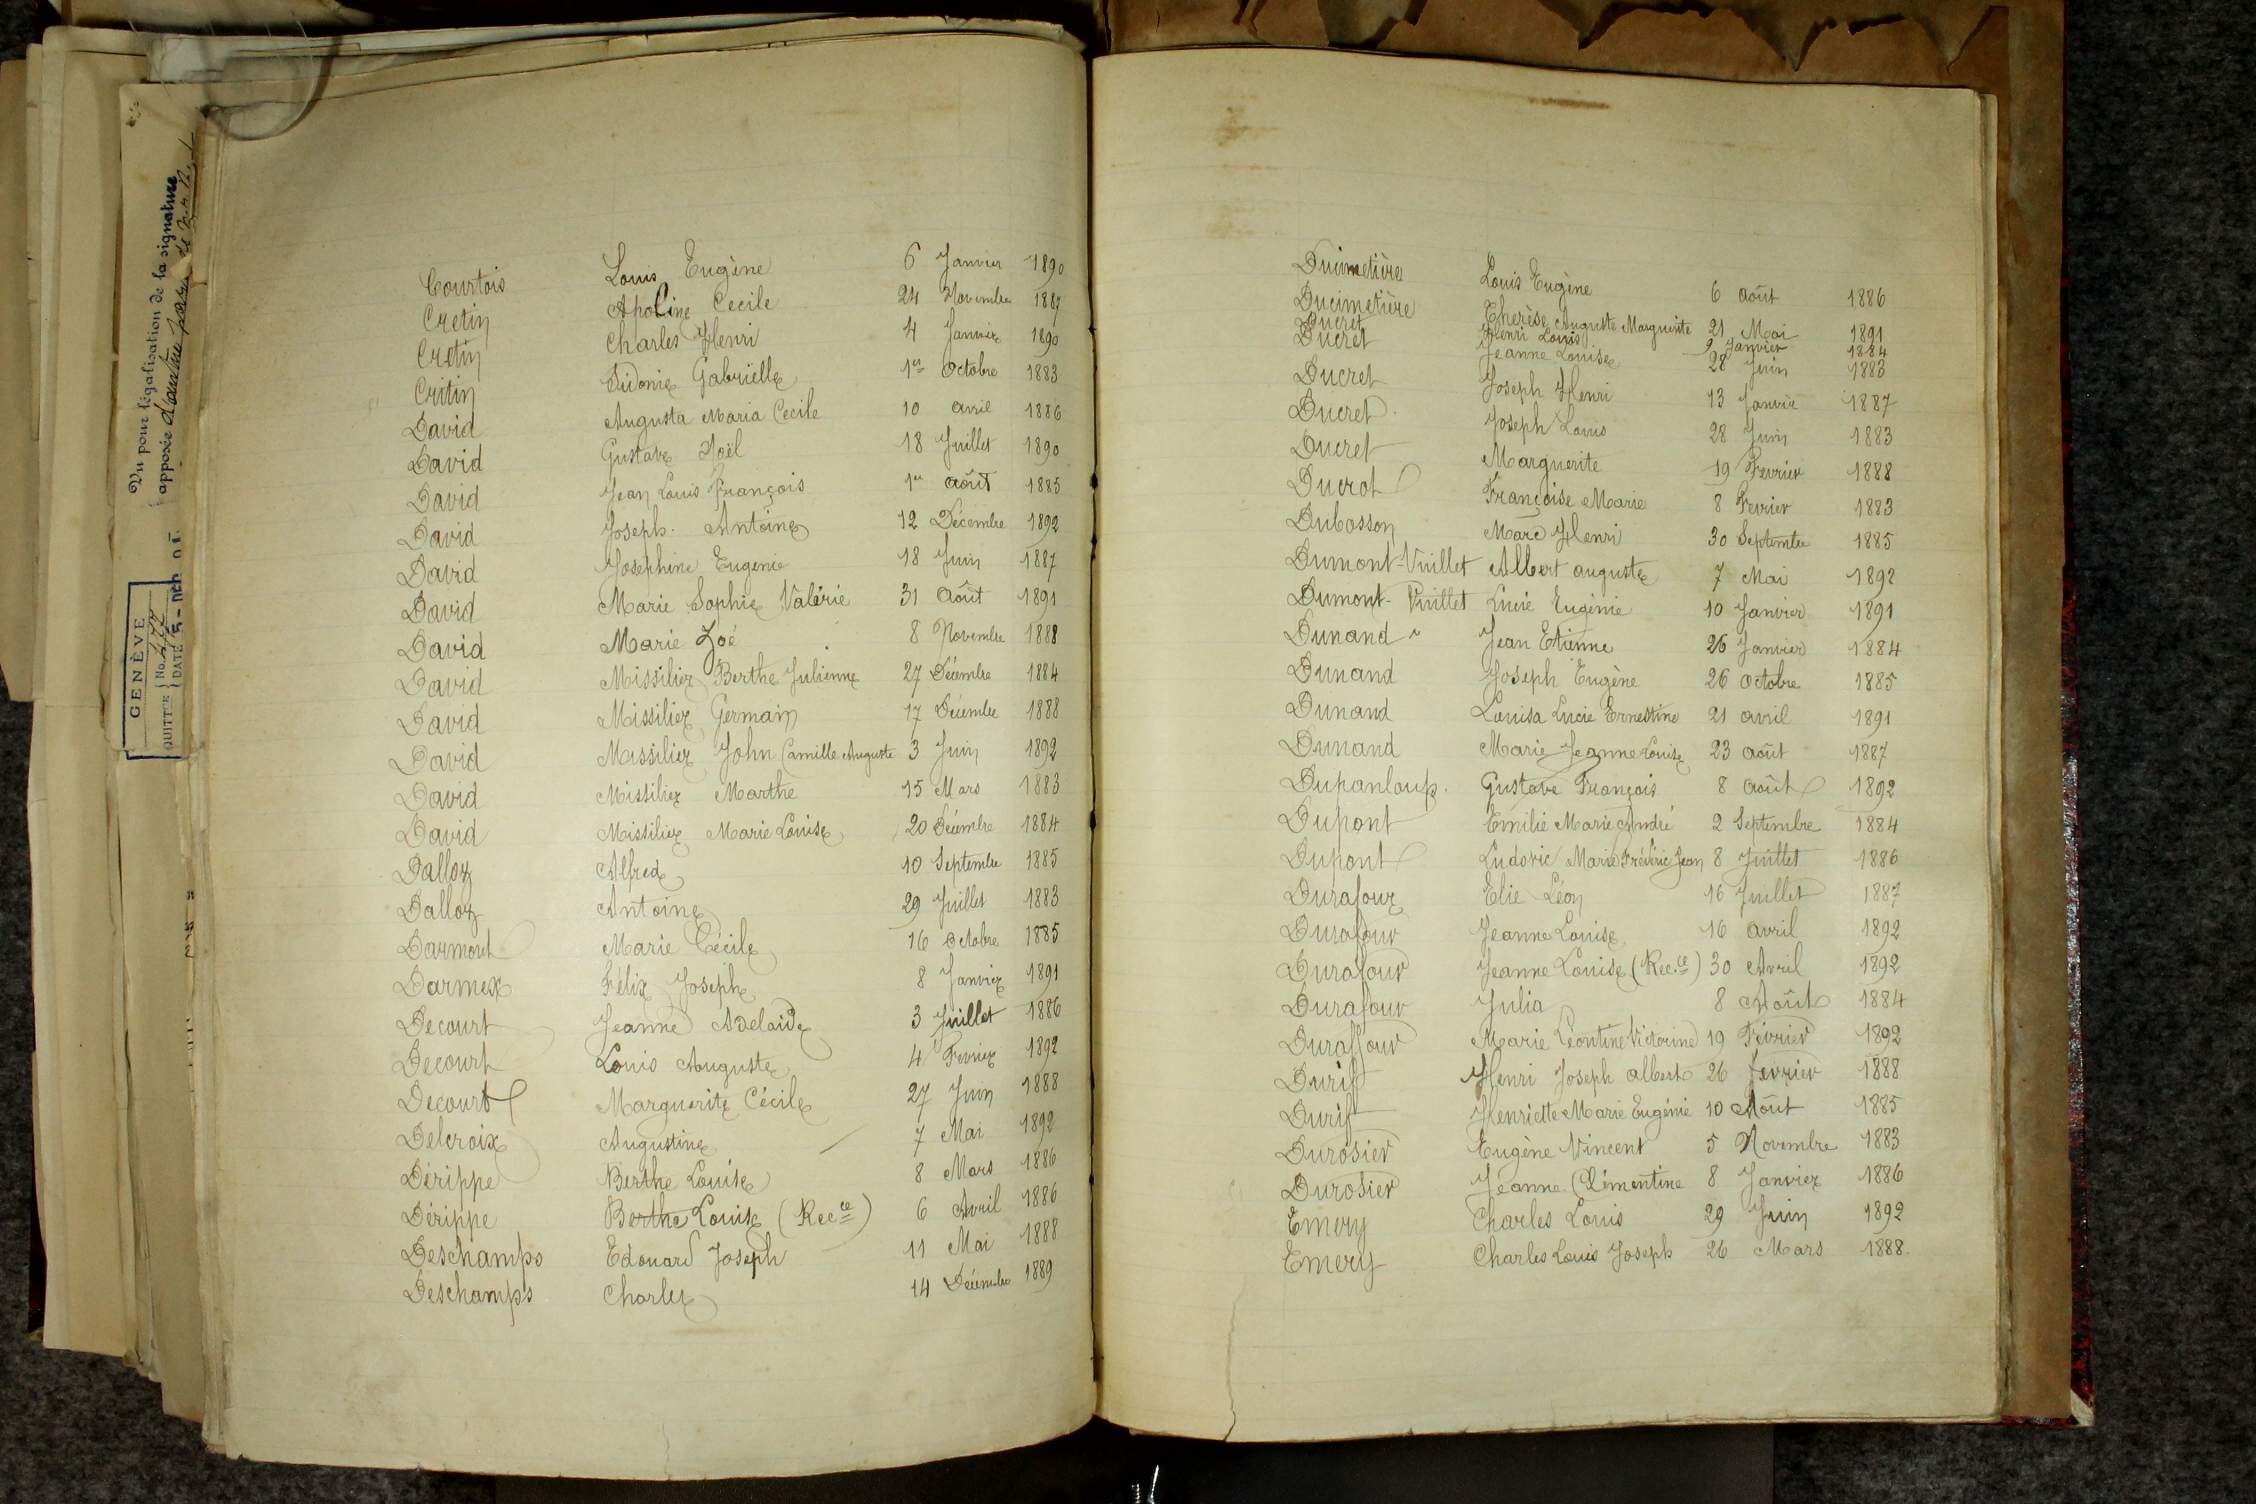 Vu pour légalisation de la signature
apposée d'autre part
GENÈVE
No. 477
QUITTCE DATE
Courtois Louis Eugène 6 Janvier 1890
Cretin Apoline Cecile 24 Novembre 1887
Cretin Charles Henri 4 Janvier 1890
Critin Sidonie Gabrielle 1er Octobre 1883
David Augusta Maria Cecile 10 avril 1886
David Gustave Noël 18 Juillet 1890
David Jean Louis François 1er août 1885
David Joseph Antoine 12 Décembre 1892
David Josephine Eugenie 18 Juin 1887
David Marie Sophie Valérie 31 Août 1891
David Marie Zoé 8 Novembre 1888
David Missilier Berthe Julienne 27 Décembre 1884
David Missilier Germain 17 Décembre 1888
David Missilier John Camille Auguste 3 Juin 1892
David Missilier Marthe 15 Mars 1883
David Missilier Marie Louise 20 Décembre 1884
Dalloz Alfred 10 Septembre 1885
Dalloz Antoine 29 Juillet 1883
Darmont Marie Cécile 16 Octobre 1885
Darmex Félix Joseph 8 Janvier 1891
Decourt Jeanne Adelaide 3 Juillet 1886
Decourt Louis Auguste 4 Fevrier 1892
Decourt Marguerite Cécile 27 Juin 1888
Delcroix Augustine 7 Mai 1892
Dérippe Berthe Louise 8 Mars 1886
Dérippe Berthe Louise (Recce) 6 Avril 1886
Deschamps Edouard Joseph 11 Mai 1888
Deschamps Charles 14 Décembre 1889
Duimetière Louis Eugène 6 août 1886
Ducimetière Therèse Auguste Marguerite 21 Mai 1891
Ducret Henri Louis 9 Janvier 1884
Ducret Jeanne Louise 28 Juin 1883
Ducret Joseph Henri 13 Janvier 1887
Ducret Joseph Louis 28 Juin 1883
Ducret Marguerite 19 Fevrier 1888
Ducrot Françoise Marie 8 Fevrier 1883
Dubosson Marc Henri 30 Septembre 1885
Dumont-Vuillet Albert auguste 7 Mai 1892
Dumont-Vuillet Lucie Eugénie 10 Janvier 1891
Dunand Jean Etienne 26 Janvier 1884
Dunand Joseph Eugène 26 Octobre 1885
Dunand Louisa Lucie Ernestine 21 avril 1891
Dunand Marie Jeanne Louise 23 août 1887
Dupanloup. Gustave François 8 août 1892
Dupont Emilie Marie André 2 Septembre 1884
Dupont Ludovic Marie Frédéric Jean 8 Juillet 1886
Durafour Elie Léon 16 Juillet 1887
Durafour Jeanne Louise 16 avril 1892
Durafour Jeanne Louise (Rec.ce) 30 Avril 1892
Durafour Julia 8 Août 1884
Duraffour Marie Léontine Victorine 19 Février 1892
Durif Henri Joseph albert 26 fevrier 1888
Durif Henriette Marie Eugénie 10 Août 1885
Durosier Eugène Vincent 5 Novembre 1883
Durosier Jeanne Clémentine 8 Janvier 1886
Emery Charles Louis 29 Juin 1892
Emery Charles Louis Joseph 26 Mars 1888.